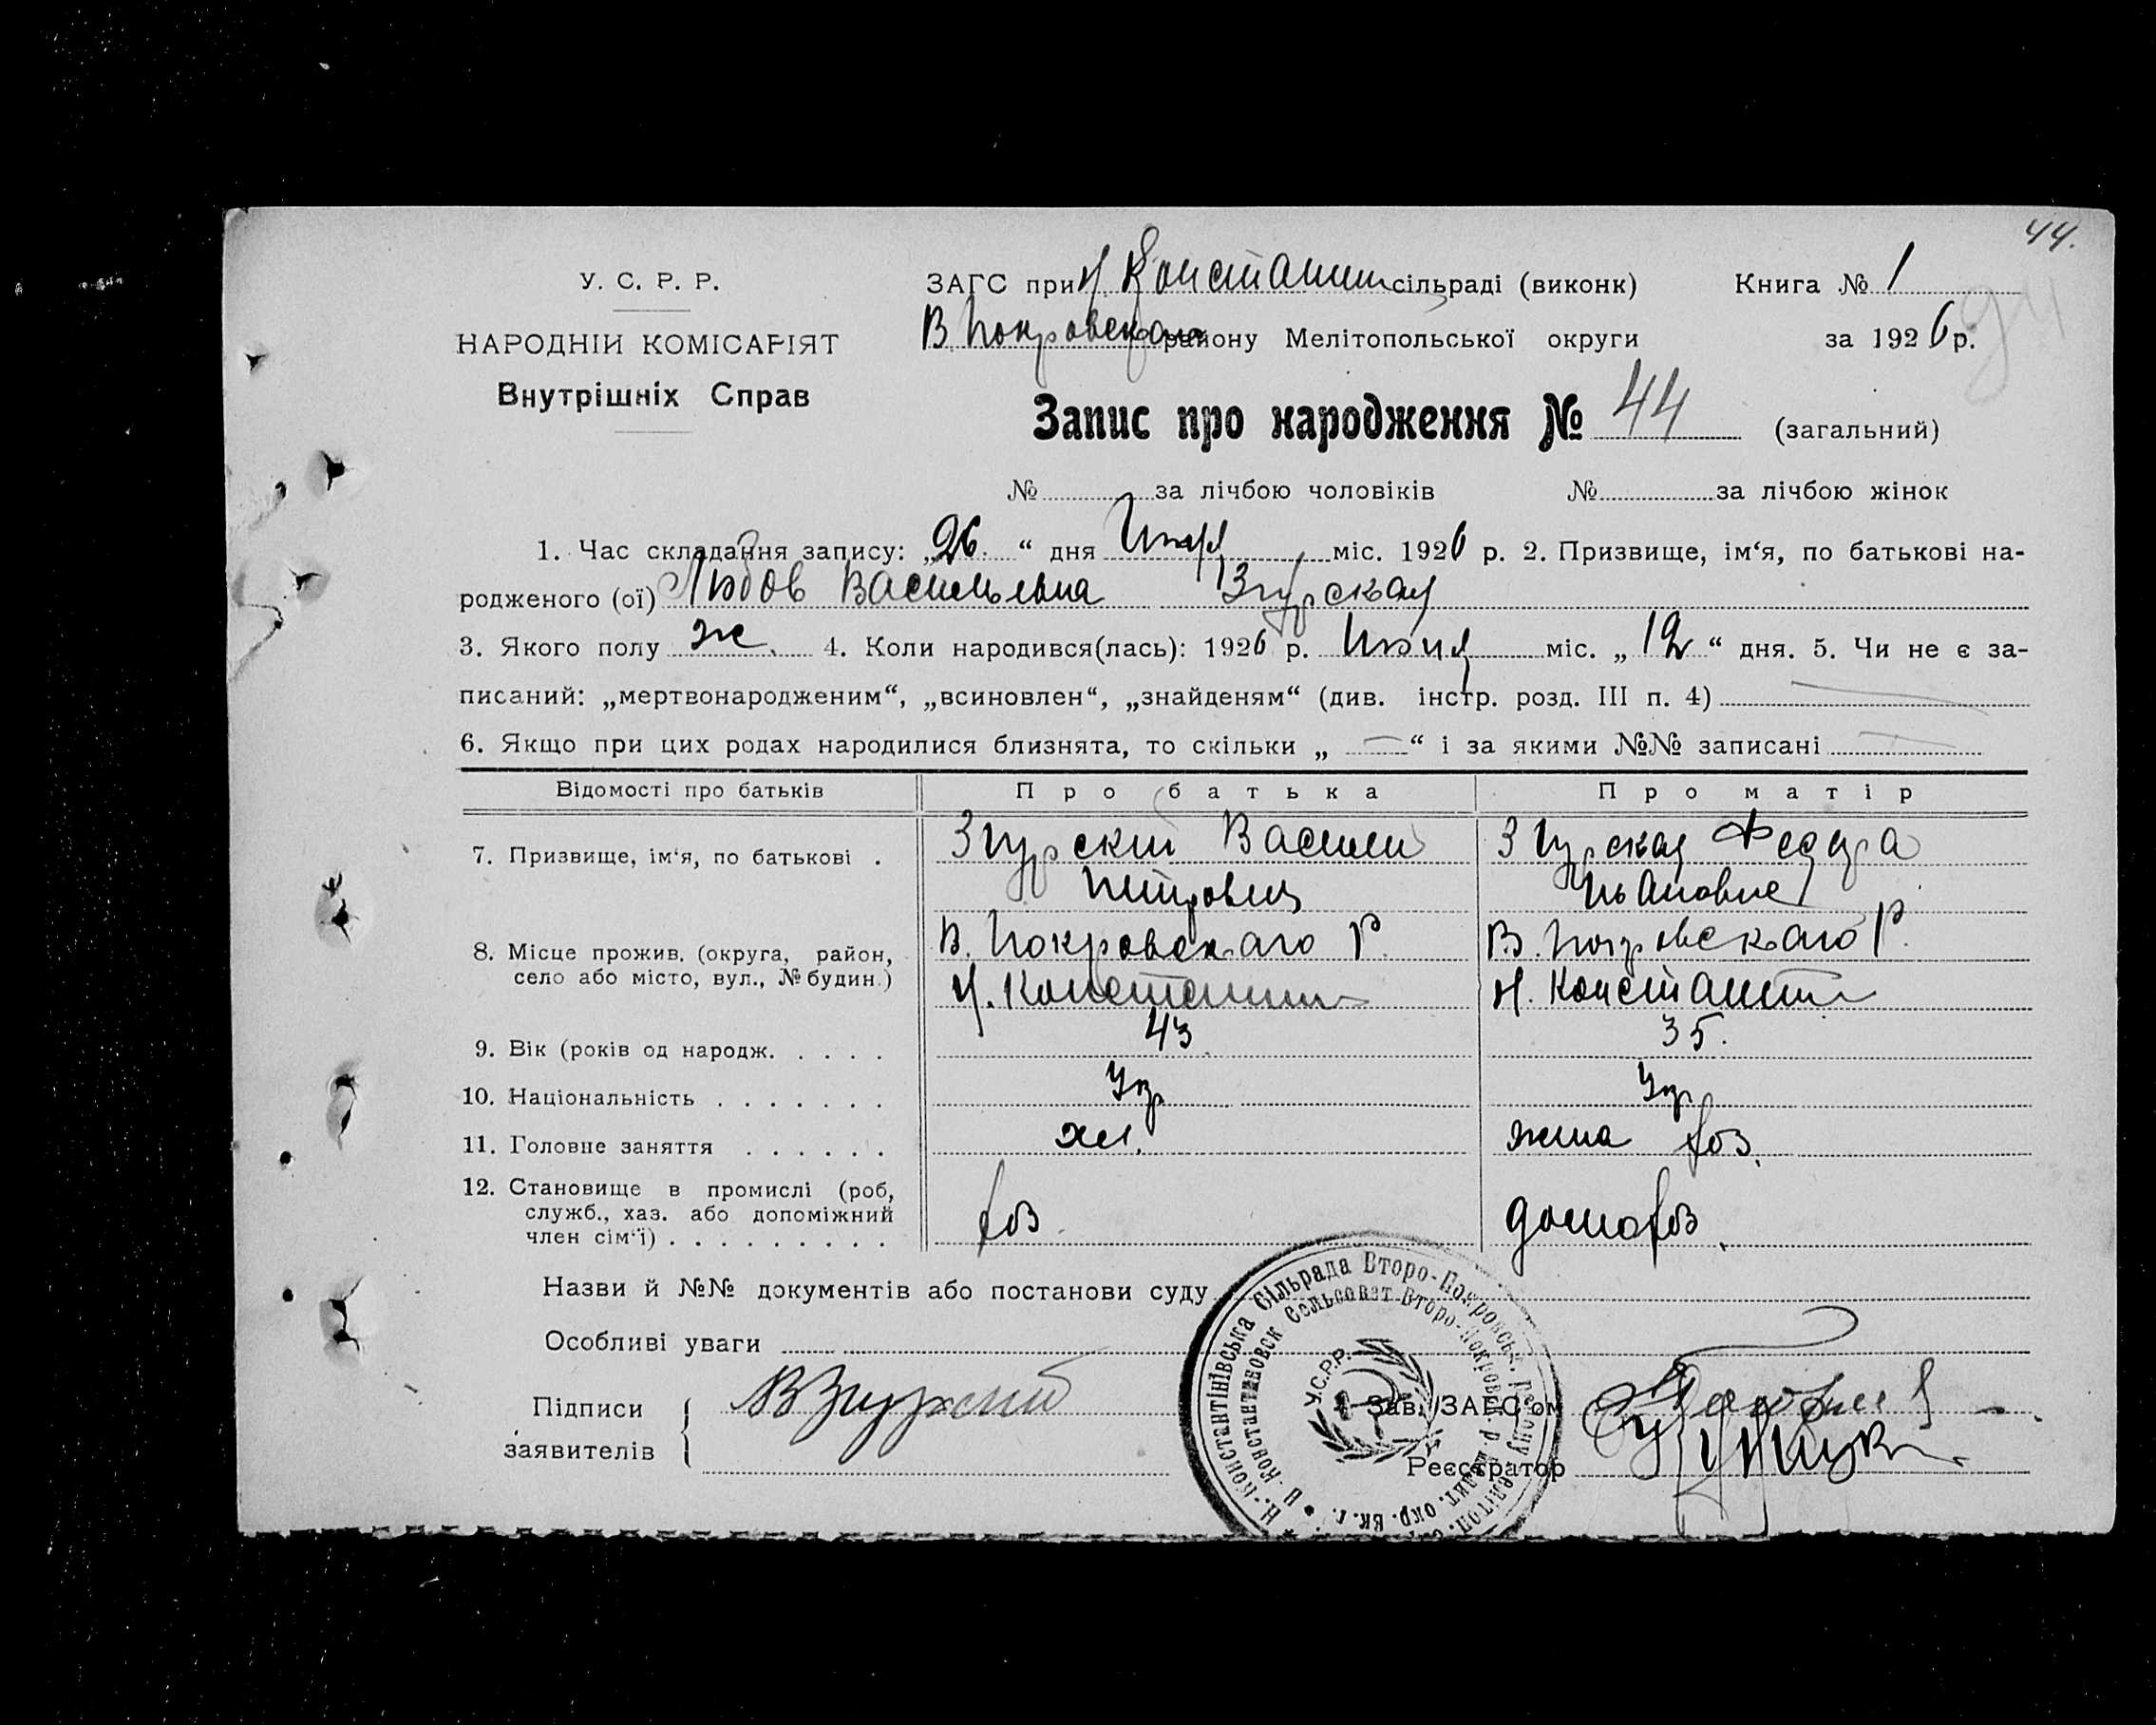 44.
У. С. Р. Р.
НАРОДНІЙ КОМІСАРІЯТ
Внутрішніх Справ
ЗАГС при Н. Константин сільраді (виконк) Книга № 1
В. Покровскаго району Мелітопольської округи за 1926 р.
94
Запис про народження № 44 (загальний)
№ за лічбою чоловіків № за лічбою жінок
1. Час складання запису: „26“ дня міс. 1926 р. 2. Призвище, ім‘я, по батькові на-
родженого (ої) Любов Васильевна Згурская
3. Якого полу ж. 4. Коли народився(лась): 1926 р. Июня міс. „12“ дня. 5. Чи не є за-
писаний: „мертвонародженим“, „всиновлен“, „знайденям“ (див. інстр. розд. III п. 4)
6. Якщо при цих родах народилися близнята, то скільки „ — “ і за якими №№ записані —
Відомості про батьків Про батька Про матір
7. Призвище, ім‘я, по батькові . Згурский Василий Згурская Федора
Петрович Ивановна
8. Місце прожив. (округа, район, В. Покровскаго Р. В. Покровскаго Р.
село або місто, вул., № будин.) Н. Константин Н. Константин
9. Вік (років од народж. . . . . 43 35.
10. Національність . . . . . . . Укр Укр
11. Головне заняття . . . . . . хл. жена хоз.
12. Становище в промислі (роб,
служб., хаз. або допоміжний хоз. домохоз.
член сім‘ї) . . . . . . . . .
Назви й №№ документів або постанови суду
Особливі уваги
Підписи ВЗгурский Зав. ЗАГС‘ом
заявителів Реєстратор
Н.-Константінівська Сільрада Второ-Покровськ. Району Мелітоп. окр.
Н-Константановск Сельсовет Второ-Покровск. Р. Мелит. окр. вк. г.
У.С.Р.Р.